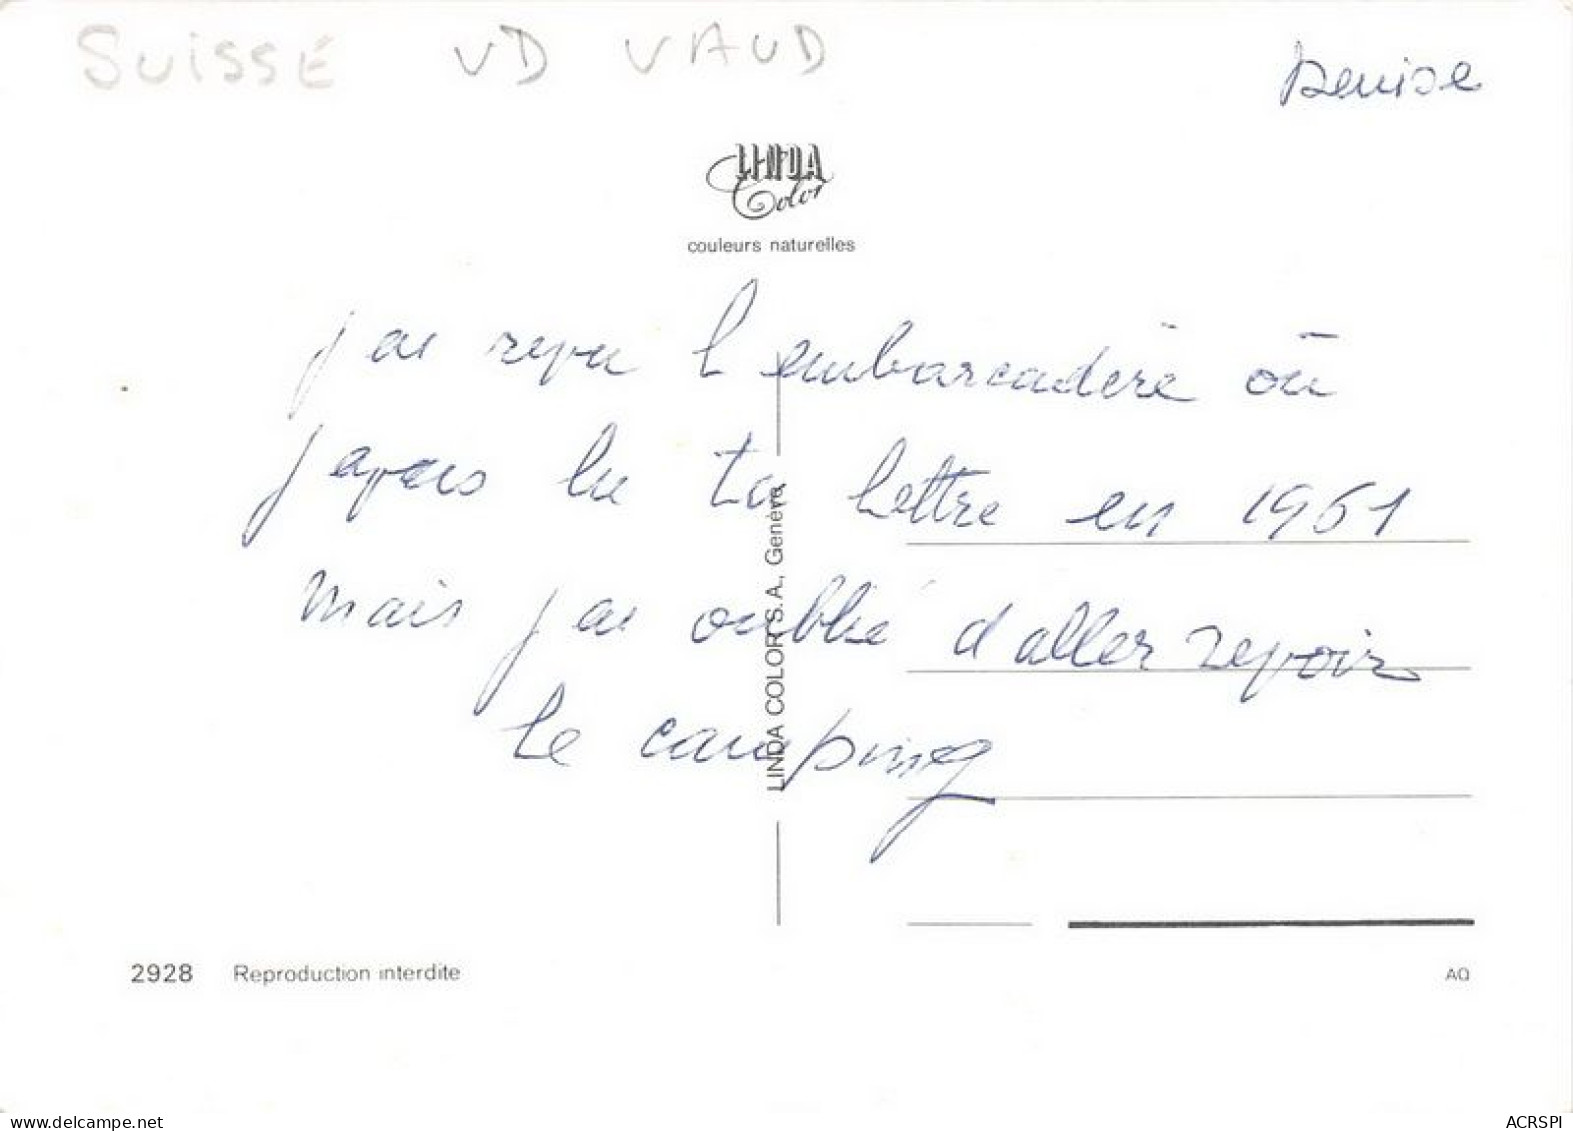 SUISSE VD VAUD
Denise
LINDA
Color
couleurs naturelles
j'ai revu l'embarcadère où
j'avais lu ta lettre en 1961
mais j'ai oublié d'aller revoir
le camping
LINDA COLOR S.A., Genève
2928 Reproduction interdite
AQ
www.delcampe.net
ACRSPI